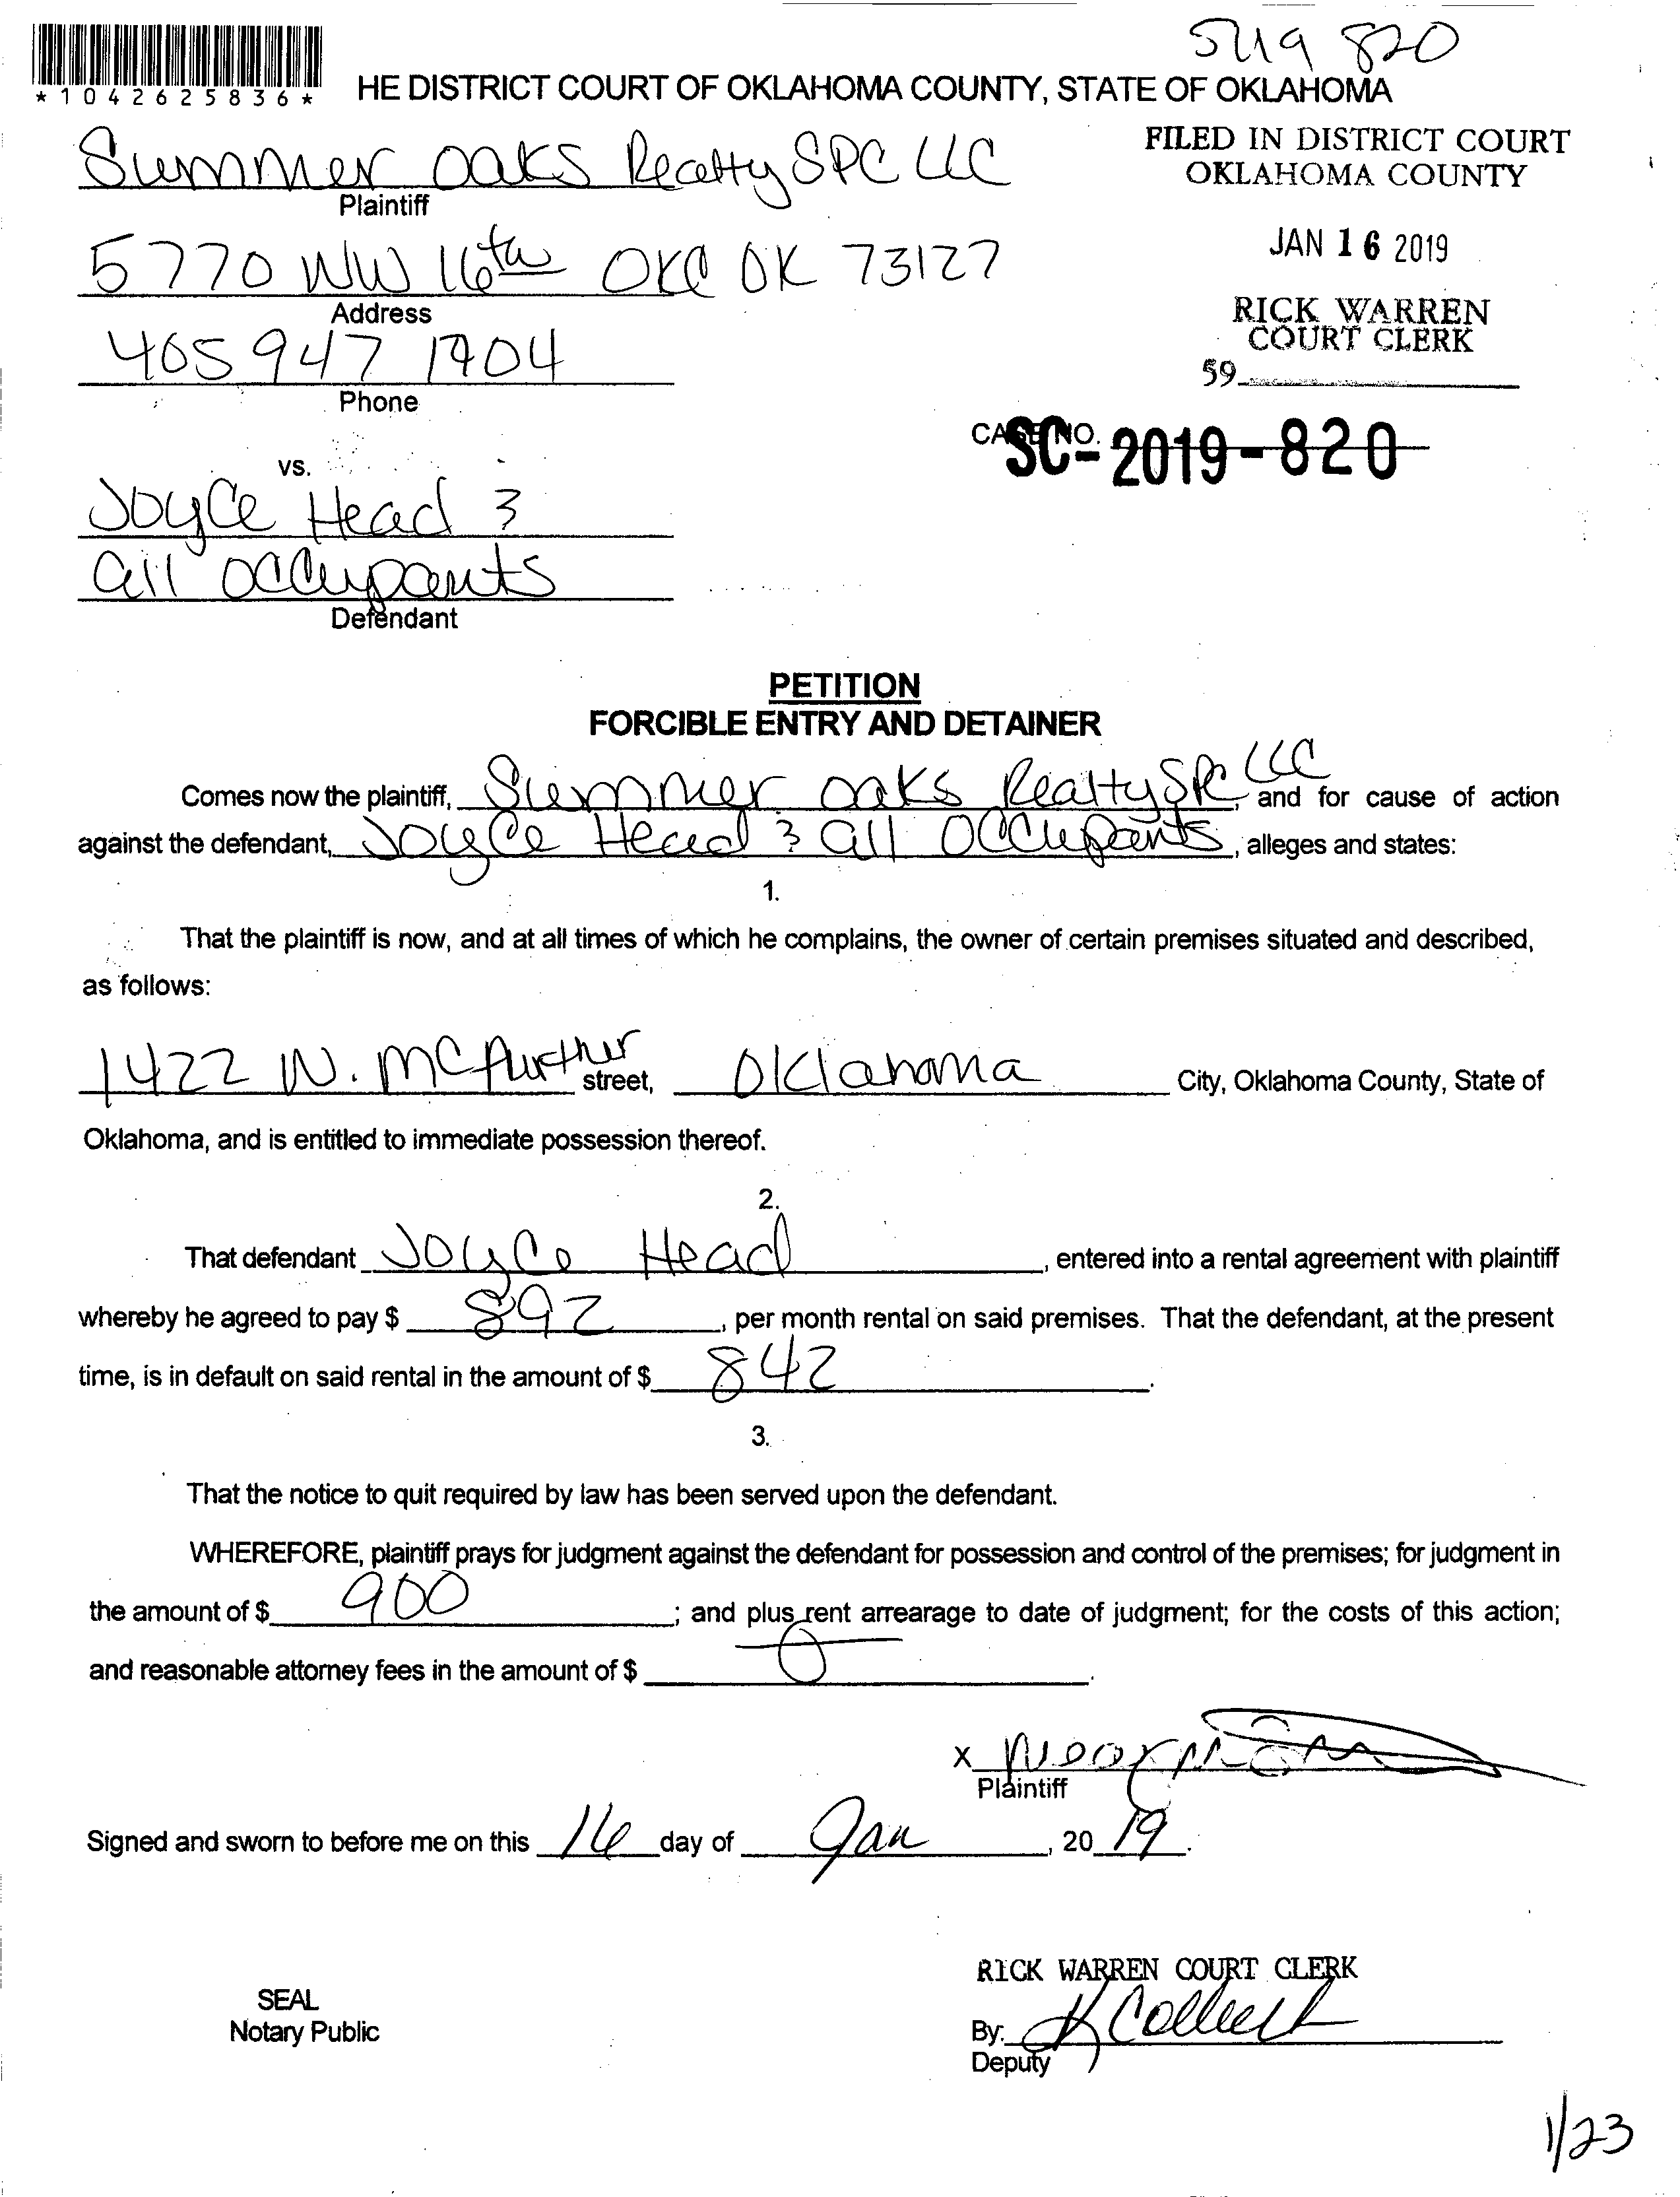 5419 820
*1042625836*
HE DISTRICT COURT OF OKLAHOMA COUNTY, STATE OF OKLAHOMA
Summer Oaks Realty SPC LLC
Plaintiff
FILED IN DISTRICT COURT
OKLAHOMA COUNTY
JAN 16 2019
RICK WARREN
COURT CLERK
59
5770 NW 16th OKC OK 73127
Address
405 947 1904
Phone
CASE NO. SC-2019-820
vs.
Joyce Head &
all occupants
Defendant
PETITION
FORCIBLE ENTRY AND DETAINER
Comes now the plaintiff, Summer Oaks Realty SPC LLC, and for cause of action
against the defendant, Joyce Head & all occupants, alleges and states:
1.
That the plaintiff is now, and at all times of which he complains, the owner of certain premises situated and described,
as follows:
1422 N. McArthur street, Oklahoma City, Oklahoma County, State of
Oklahoma, and is entitled to immediate possession thereof.
2.
That defendant Joyce Head, entered into a rental agreement with plaintiff
whereby he agreed to pay $ 892, per month rental on said premises. That the defendant, at the present
time, is in default on said rental in the amount of $ 842.
3.
That the notice to quit required by law has been served upon the defendant.
WHEREFORE, plaintiff prays for judgment against the defendant for possession and control of the premises; for judgment in
the amount of $ 900; and plus rent arrearage to date of judgment; for the costs of this action;
and reasonable attorney fees in the amount of $ 0.
X
Plaintiff
Signed and sworn to before me on this 16 day of Jan, 2019.
RICK WARREN COURT CLERK
SEAL
Notary Public
By:
Deputy
1/23